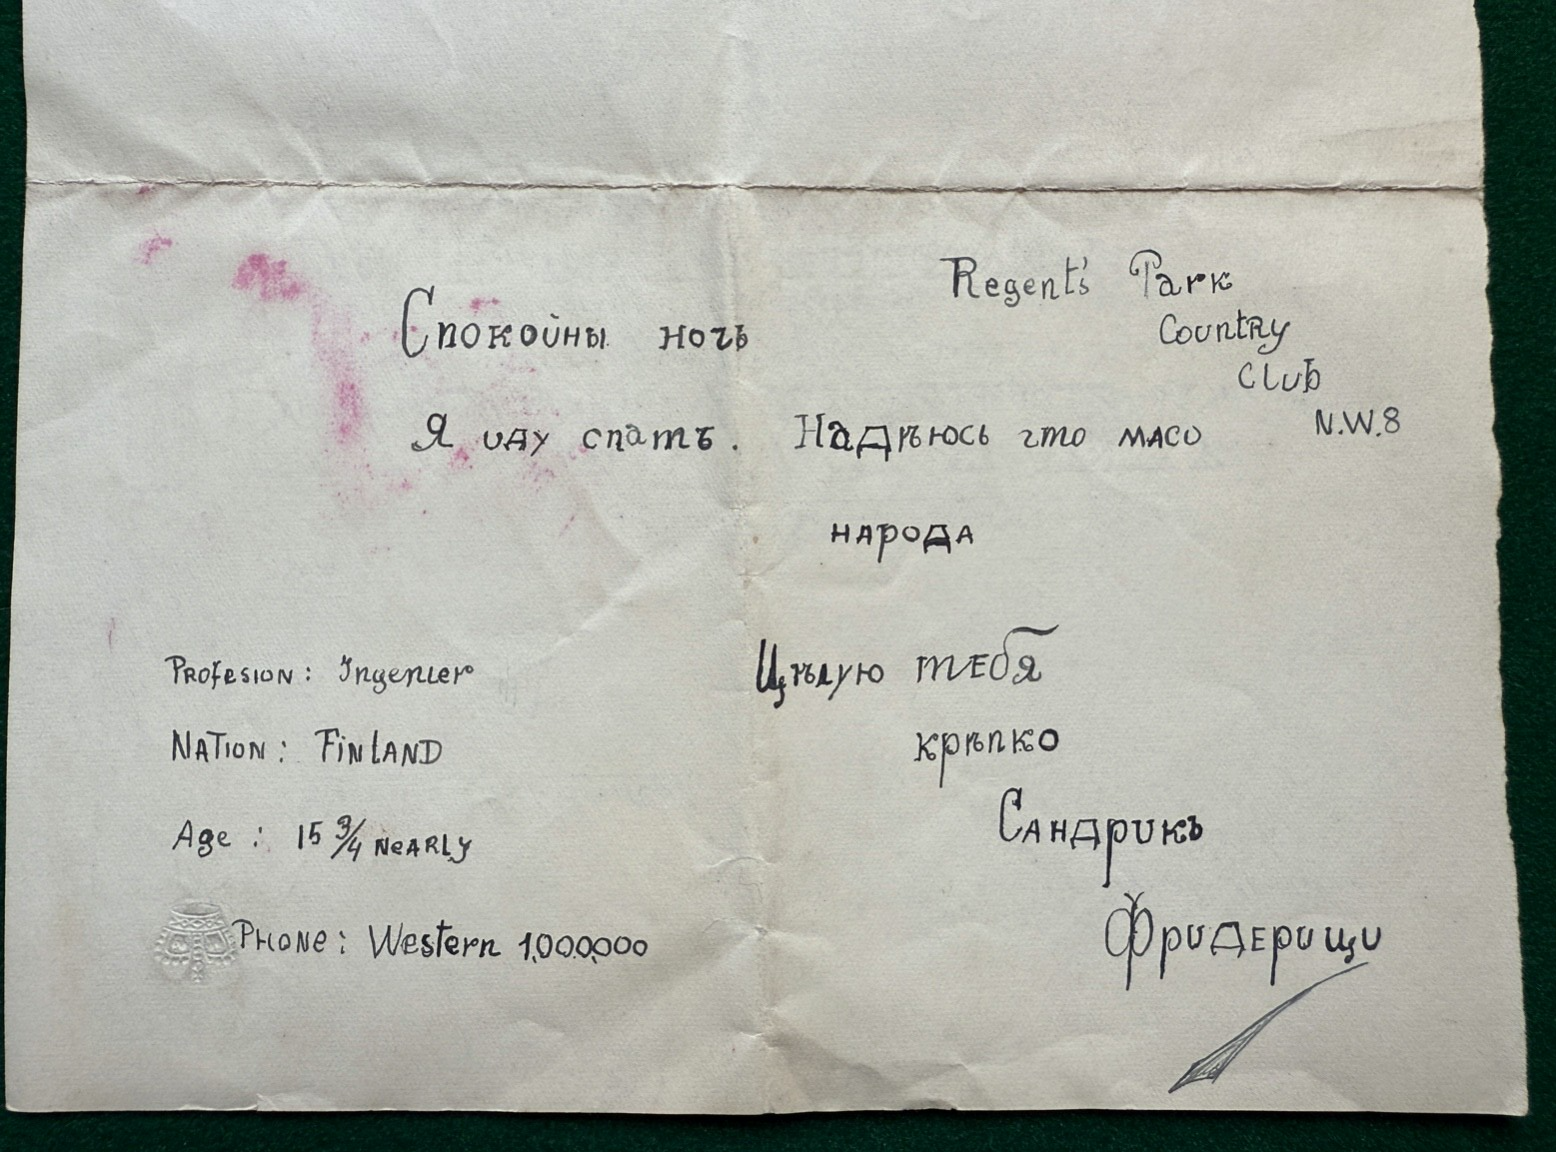 Regent's Park
Country
Club
N.W.8
Спокойны ночь
Я иду спать. Надѣюсь что масо
народа
Цѣлую тебя
крѣпко
Сандрикъ
Фридерици
Profesion: Ingenier
Nation: Finland
Age: 15 3/4 nearly
Phone: Western 1,000,000